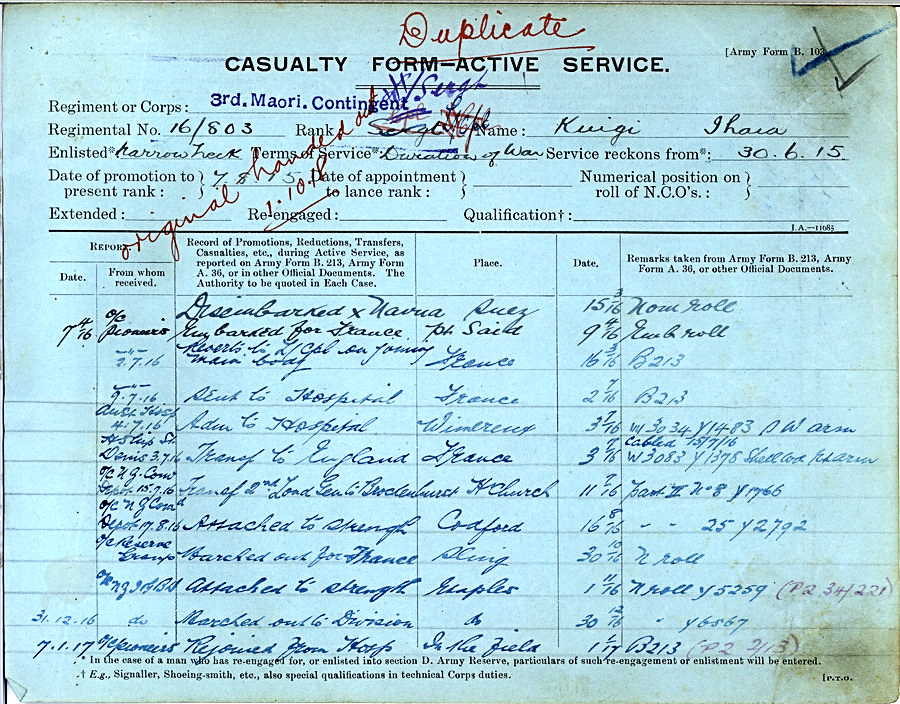 Duplicate
[Army Form B. 103
CASUALTY FORM—ACTIVE SERVICE.
Regiment or Corps: 3rd. Maori. Contingent
Regimental No. 16/803 Rank Sergt Name: Kingi Ihaia
Enlisted* Narrow Neck Terms of Service* Duration of War Service reckons from*: 30.6.15
Date of promotion to present rank: } 7.8.15 Date of appointment to lance rank: } Numerical position on roll of N.C.O's.: }
Extended: Re-engaged: Qualification†:
original handed out
1.10.18
I.A.—11085
Report. Date. From whom received. Record of Promotions, Reductions, Transfers, Casualties, etc., during Active Service, as reported on Army Form B. 213, Army Form A. 36, or in other Official Documents. The Authority to be quoted in Each Case. Place. Date. Remarks taken from Army Form B. 213, Army Form A. 36, or other Official Documents.
Disembarked x Navua Suez 15 3/16 Nom roll
7 4/16 o/c Pioneers Embarked for France Pt Said 9 4/16 Emb roll
-"- 2.7.16 Reverts to L/Cpl on joining main body France 16 B213
-"- 9.7.16 Sent to Hospital France 2 7/16 B213
Aust Hosp 4.7.16 Adm to Hospital Wimereux 3 7/16 W3034 Y1483 S W arm
cabled 15/7/16
H Ship St. Denis 3.7.16 Transf to England France 3 7/16 W3083 Y1378 Shell wd arm
o/c N Z Com Depot 15.7.16 Transf 2nd Lond Gen to Brockenhurst H Church 11 7/16 Part II No 8 Y1766
o/c N Z Comd Depot 17.8.16 Attached to strength Codford 16 8/16 - - 25 Y2792
o/c Reserve Group Marched out for France Sling 30 10/16 N roll
o/c N.Z.I & G B D Attached to strength Etaples 1 11/16 N roll Y5259 (P2 34/221)
31.12.16 do Marched out to Division do 30 12/16 " Y6567
7.1.17 o/c Pioneers Rejoined from Hosp In the Field 1 1/17 B213 (P2 2/13)
* In the case of a man who has re-engaged for, or enlisted into section D. Army Reserve, particulars of such re-engagement or enlistment will be entered.
† E.g., Signaller, Shoeing-smith, etc., also special qualifications in technical Corps duties.
[P.T.O.